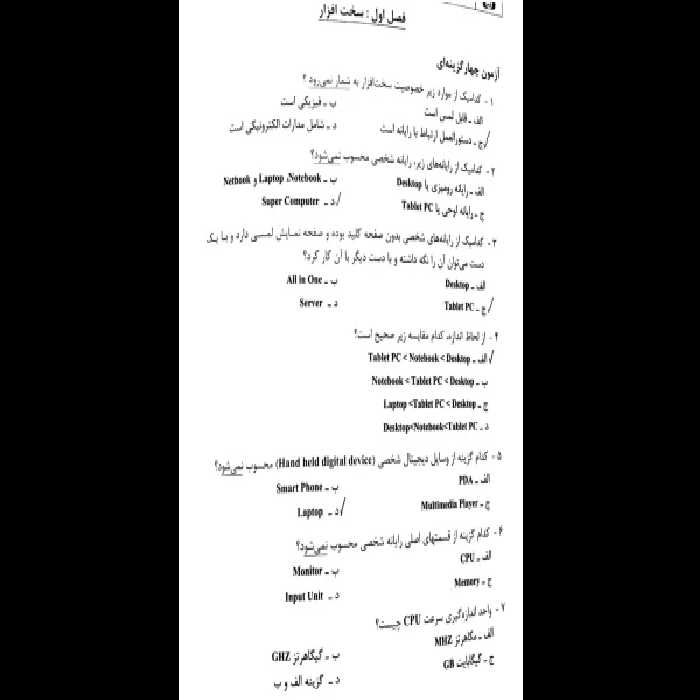 فصل اول : سخت افزار
آزمون چهار گزینه‌ای
۱ - کدامیک از موارد زیر خصوصیت سخت‌افزار به شمار نمی‌رود ؟
الف ـ قابل لمس است    ب ـ فیزیکی است
ج ـ دستورالعمل ارتباط با رایانه است    د ـ شامل مدارات الکترونیکی است
۲ - کدامیک از رایانه‌های زیر، رایانه شخصی محسوب نمی‌شود؟
الف ـ رایانه رومیزی یا Desktop    ب ـ Laptop ،Notebook و Netbook
ج ـ رایانه لوحی یا Tablet PC    د ـ Super Computer
۳ - کدامیک از رایانه‌های شخصی بدون صفحه کلید بوده و صفحه نمایش لمسی دارد و با یک
دست می‌توان آن را نگه داشته و با دست دیگر با آن کار کرد؟
الف ـ Desktop    ب ـ All in One
ج ـ Tablet PC    د ـ Server
۴ - از لحاظ اندازه، کدام مقایسه زیر صحیح است؟
الف ـ Tablet PC < Notebook < Desktop
ب ـ Notebook < Tablet PC < Desktop
ج ـ Laptop <Tablet PC < Desktop
د ـ Desktop<Notebook<Tablet PC
۵ - کدام گزینه از وسایل دیجیتال شخصی (Hand held digital device) محسوب نمی‌شود؟
الف ـ PDA    ب ـ Smart Phone
ج ـ Multimedia Player    د ـ Laptop
۶ - کدام گزینه از قسمتهای اصلی رایانه شخصی محسوب نمی‌شود؟
الف ـ CPU    ب ـ Monitor
ج ـ Memory    د ـ Input Unit
۷ - واحد اندازه‌گیری سرعت CPU چیست؟
الف ـ مگاهرتز MHZ    ب ـ گیگاهرتز GHZ
ج ـ گیگابایت GB    د ـ گزینه الف و ب